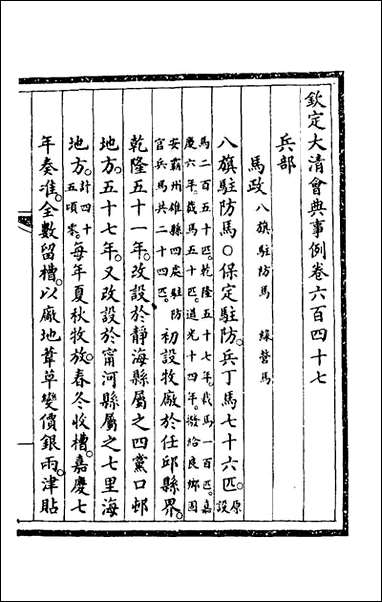 欽定大清會典事例卷六百四十七
兵部
馬政 八旗駐防馬 綠營馬
八旗駐防馬〇保定駐防兵丁馬七十六匹。原設
馬二百五十匹。乾隆五十七年。裁馬一百匹。嘉
慶六年。裁馬五十匹。道光十四年。撥給良鄉固
安霸州雄縣四處駐防官兵馬共二十四匹。初設牧廠於任邱縣界。
乾隆五十一年。改設於靜海縣屬之四黨口邨
地方。五十七年。又改設於甯河縣屬之七里海
地方。計四十五頃零。每年夏秋牧放。春冬收槽。嘉慶七
年奏准。全數留槽。以廠地葦草變價銀兩。津貼